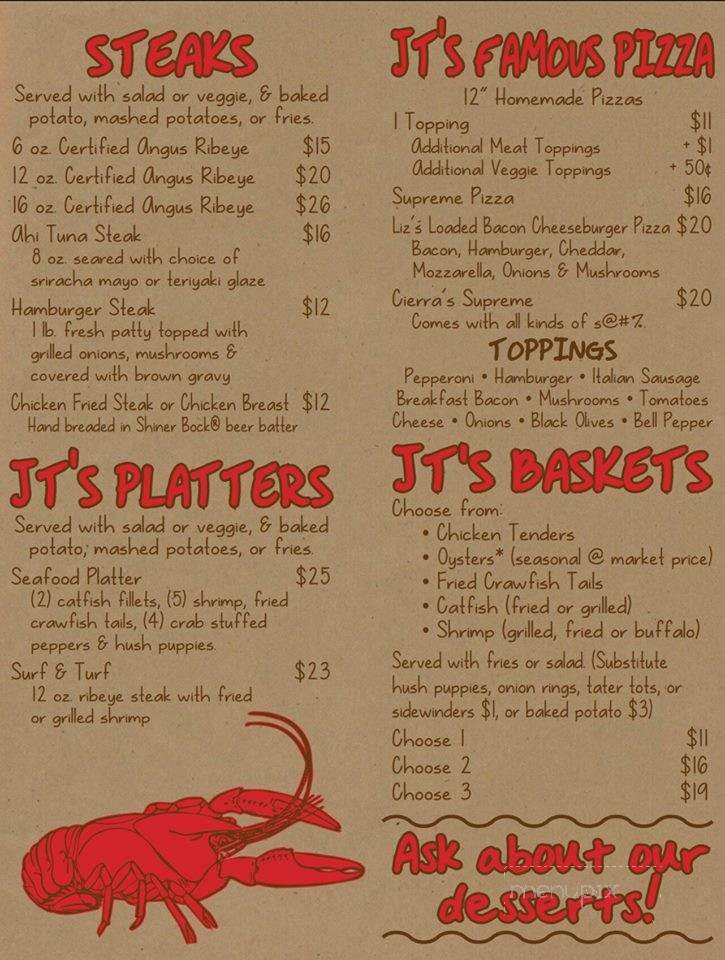 STEAKS
Served with salad or veggie, & baked
potato, mashed potatoes, or fries.
6 oz. Certified Angus Ribeye $15
12 oz. Certified Angus Ribeye $20
16 oz. Certified Angus Ribeye $26
Ahi Tuna Steak $16
8 oz. seared with choice of
sriracha mayo or teriyaki glaze
Hamburger Steak $12
1 lb. fresh patty topped with
grilled onions, mushrooms &
covered with brown gravy
Chicken Fried Steak or Chicken Breast $12
Hand breaded in Shiner Bock® beer batter
JT'S PLATTERS
Served with salad or veggie, & baked
potato, mashed potatoes, or fries.
Seafood Platter $25
(2) catfish fillets, (5) shrimp, fried
crawfish tails, (4) crab stuffed
peppers & hush puppies.
Surf & Turf $23
12 oz. ribeye steak with fried
or grilled shrimp
JT'S FAMOUS PIZZA
12" Homemade Pizzas
1 Topping $11
Additional Meat Toppings + $1
Additional Veggie Toppings + 50¢
Supreme Pizza $16
Liz's Loaded Bacon Cheeseburger Pizza $20
Bacon, Hamburger, Cheddar,
Mozzarella, Onions & Mushrooms
Cierra's Supreme $20
Comes with all kinds of s@#%.
TOPPINGS
Pepperoni • Hamburger • Italian Sausage
Breakfast Bacon • Mushrooms • Tomatoes
Cheese • Onions • Black Olives • Bell Pepper
JT'S BASKETS
Choose from:
• Chicken Tenders
• Oysters* (seasonal @ market price)
• Fried Crawfish Tails
• Catfish (fried or grilled)
• Shrimp (grilled, fried or buffalo)
Served with fries or salad. (Substitute
hush puppies, onion rings, tater tots, or
sidewinders $1, or baked potato $3)
Choose 1 $11
Choose 2 $16
Choose 3 $19
Ask about our
desserts!
menupix